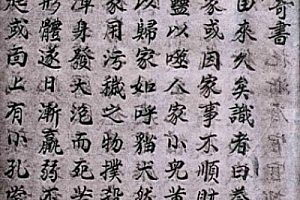 奇書
由來久矣識者曰
家或因家事不順財
以噬人家小兒黃
以歸家如呼貓犬然
家用污穢之物撲殺
渾身發大泡而死若
形體遂日漸羸弱不
起或面上有小孔